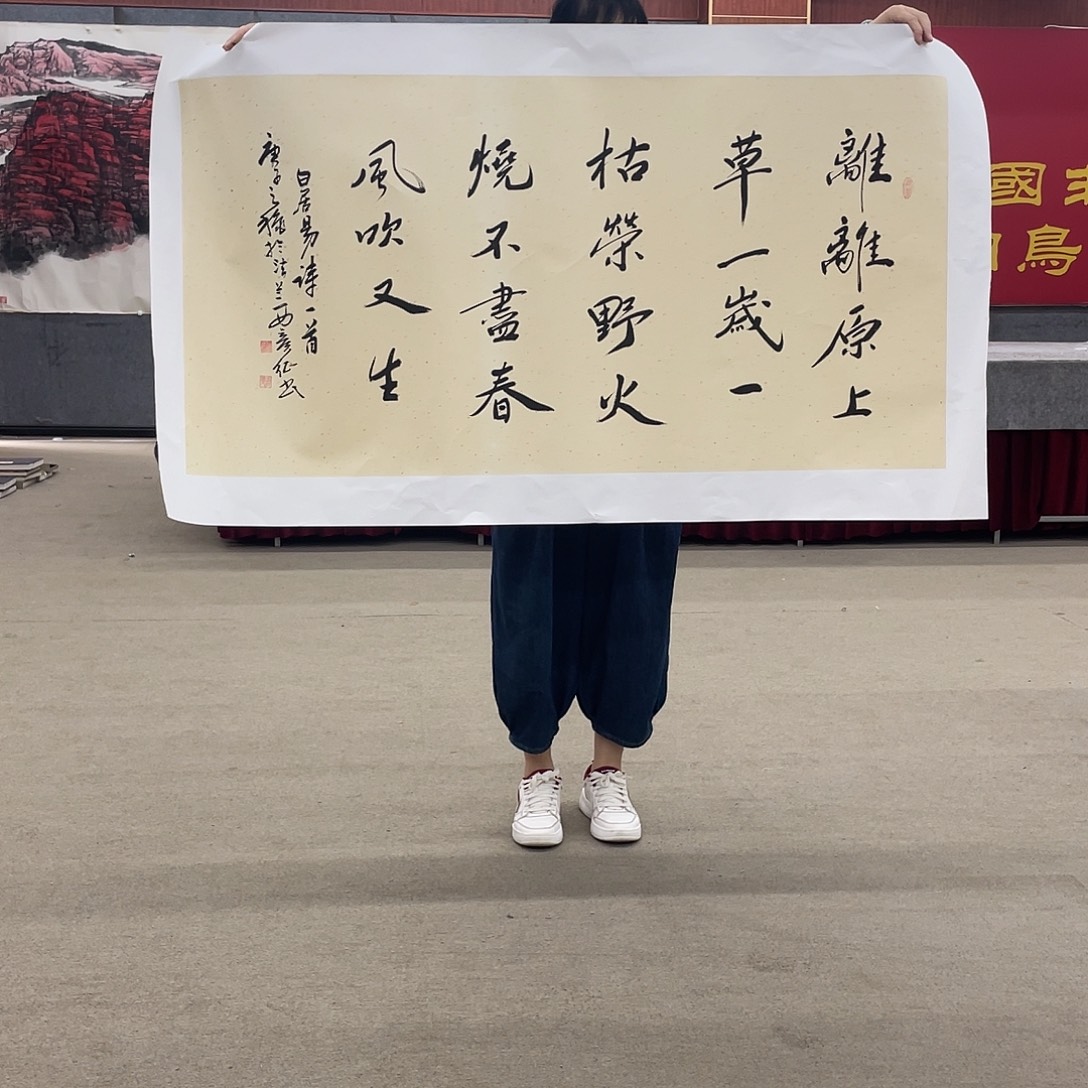 離離原上
草一歲一
枯榮野火
燒不盡春
風吹又生
白居易詩一首
庚子之秋於法兰西彦征书
國
鳥